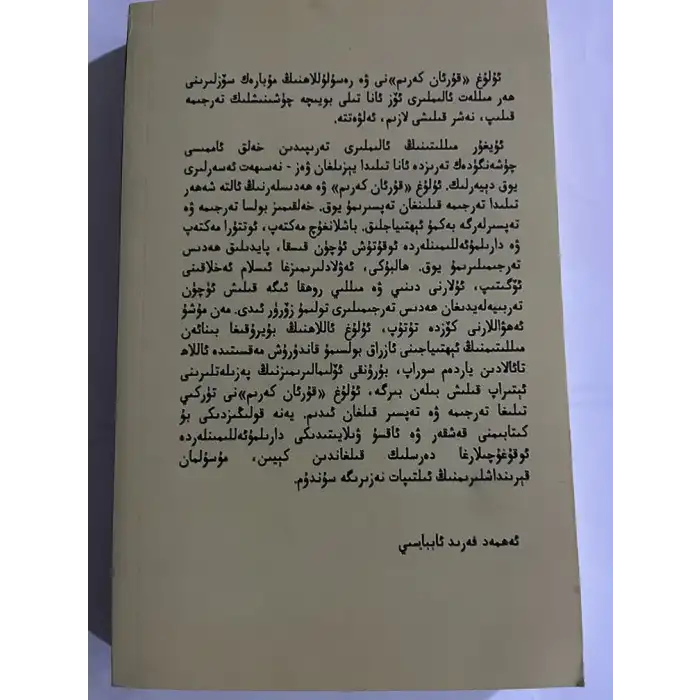 ئۇلۇغ «قۇرئان كەرىم»نى ۋە رەسۇلۇللاھنىڭ مۇبارەك سۆزلىرىنى
ھەر مىللەت ئالىملىرى ئۆز ئانا تىلى بويىچە چۈشىنىشلىك تەرجىمە
قىلىپ، نەشر قىلىشى لازىم، ئەلۋەتتە.
ئۇيغۇر مىللىتىنىڭ ئالىملىرى تەرىپىدىن خەلق ئاممىسى
چۈشەنگۈدەك تەرىزدە ئانا تىلىدا يېزىلغان ۋەز - نەسىھەت ئەسەرلىرى
يوق دېيەرلىك. ئۇلۇغ «قۇرئان كەرىم» ۋە ھەدىسلەرنىڭ ئالتە شەھەر
تىلىدا تەرجىمە قىلىنغان تەپسىرىمۇ يوق. خەلقىمىز بولسا تەرجىمە ۋە
تەپسىرلەرگە بەكمۇ ئېھتىياجلىق. باشلانغۇچ مەكتەپ، ئوتتۇرا مەكتەپ
ۋە دارىلمۇئەللىمىنلەردە ئوقۇتۇش ئۈچۈن قىسقا، پايدىلىق ھەدىس
تەرجىمىلىرىمۇ يوق. ھالبۇكى، ئەۋلادلىرىمىزغا ئىسلام ئەخلاقىنى
ئۆگىتىپ، ئۇلارنى دىنىي ۋە مىللىي روھقا ئىگە قىلىش ئۈچۈن
تەربىيەلەيدىغان ھەدىس تەرجىمىلىرى تولىمۇ زۆرۈر ئىدى. مەن مۇشۇ
ئەھۋاللارنى كۆزدە تۇتۇپ، ئۇلۇغ ئاللاھنىڭ بۇيرۇقىغا بىنائەن
مىللىتىمنىڭ ئېھتىياجىنى ئازراق بولسىمۇ قاندۇرۇش مەقسىتىدە ئاللاھ
تائالادىن ياردەم سوراپ، بۇرۇنقى ئۆلىمالىرىمىزنىڭ پەزىلەتلىرىنى
ئېتىراپ قىلىش بىلەن بىرگە، ئۇلۇغ «قۇرئان كەرىم»نى تۈركىي
تىلىغا تەرجىمە ۋە تەپسىر قىلغان ئىدىم. يەنە قولىڭىزدىكى بۇ
كىتابىمنى قەشقەر ۋە ئاقسۇ ۋىلايىتىدىكى دارىلمۇئەللىمىنلەردە
ئوقۇغۇچىلارغا دەرسلىك قىلغاندىن كېيىن، مۇسۇلمان
قېرىنداشلىرىمنىڭ ئىلتىپات نەزىرىگە سۇندۇم.
ئەھمەد فەرىد ئابباسىي